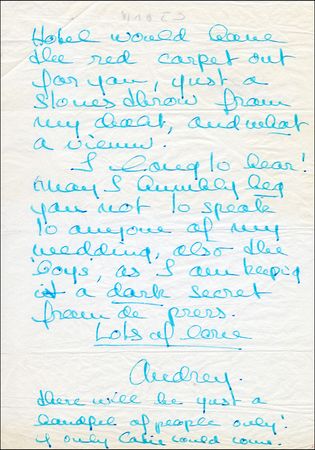 Hotel would have
the red carpet out
for you, just a
stones throw from
my chalet, and what
a vieuw.
I long to hear!
may I humbly beg
you not to speak
to anyone of my
wedding, also the
'boys', as I am keeping
it a dark secret
from de press.
Lots of love
Audrey.
there will be just a
handful of people only!
if only Connie could come.